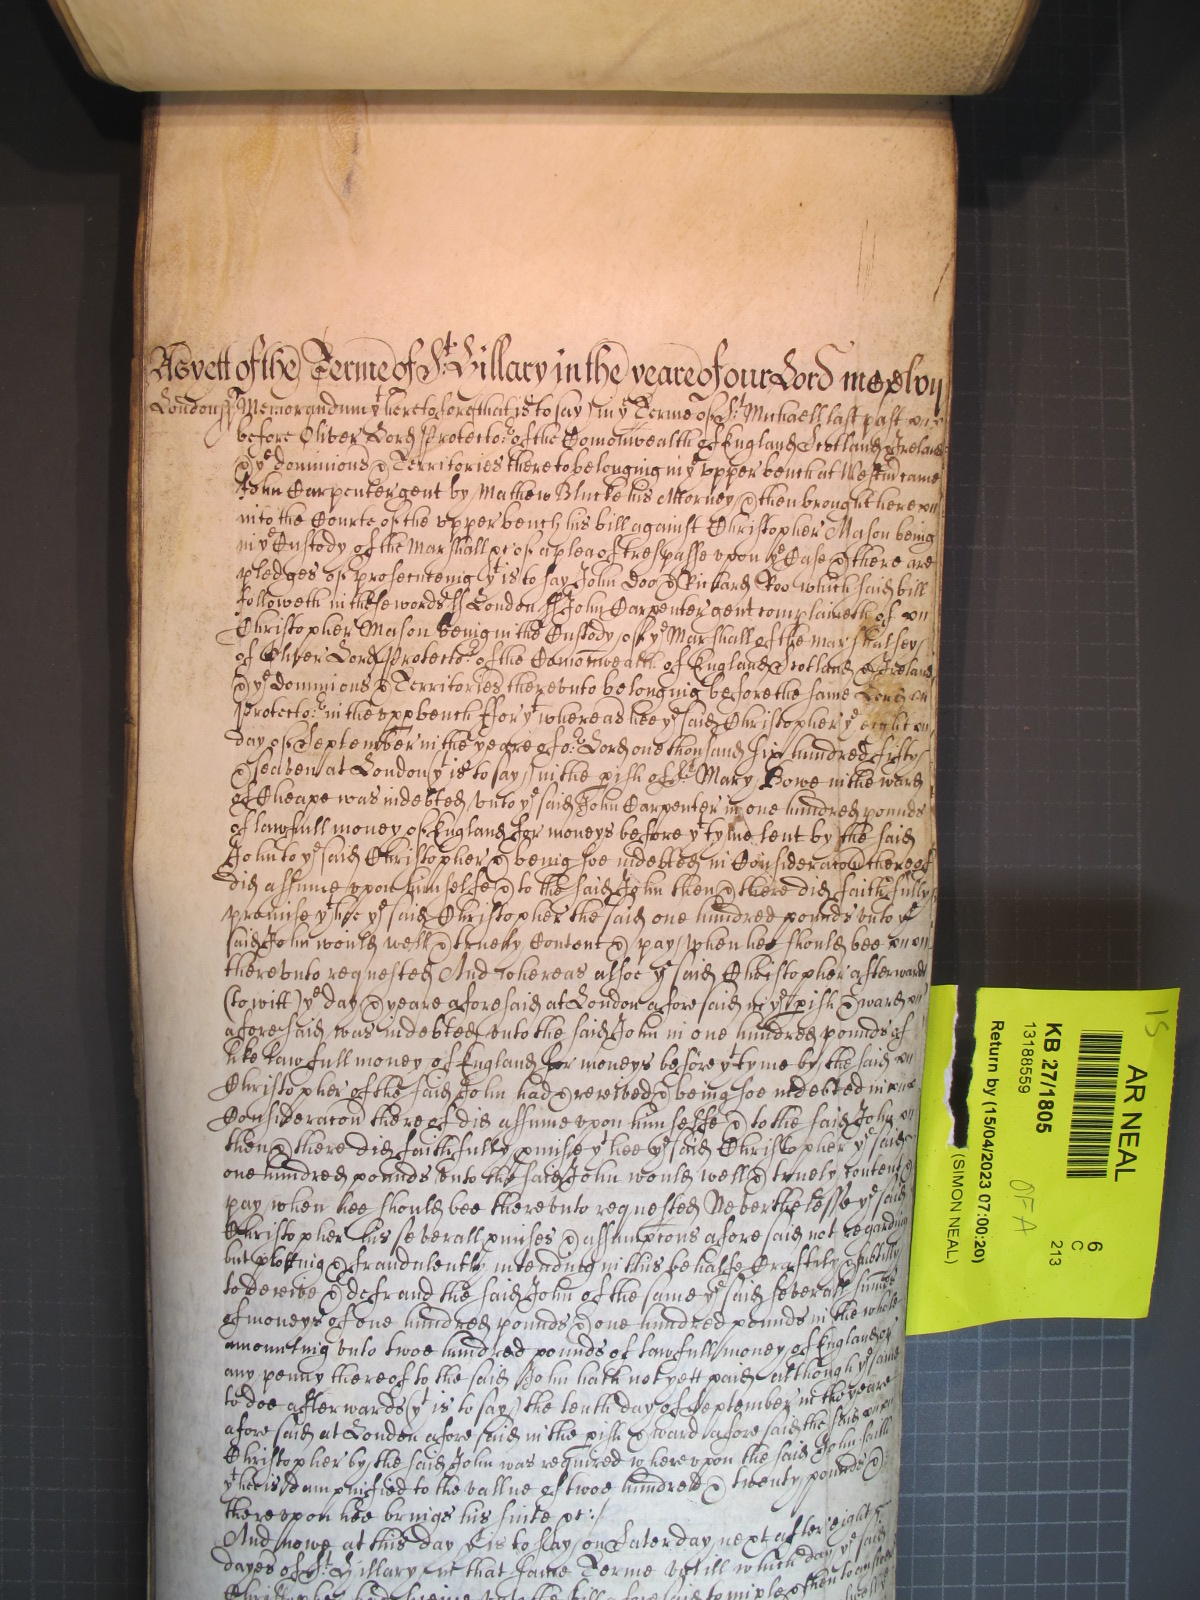 As yett of the Terme of St Hillary in the yeare of our Lord mdclvii
London ss Memorandum yt heretofore that is to say in ye Terme of St Michaell last past
before Oliver Lord Protector of the Comonwealth of England Scotland & Ireland
& ye dominions & Territories thereto belonging in ye upper bench at Westm came
John Carpenter gent by Mathew Blucke his Attorney & then brought here
into the Courte of the upper bench his bill against Christopher Mason being
in ye Custody of the Marshall &c of a plea of trespasse upon ye Case & there are
pledges of prosecuteing yt is to say John Doo & Richard Roo which said bill
followeth in these words ss London ss John Carpenter gent complaineth of
Christopher Mason being in the Custody of ye Marshall of the marshalsey
of Oliver Lord Protector of the Comonwealth of England Scotland & Ireland
& ye dominions & Territories thereunto belonging before the same Lord
Protector in the upp bench ffor yt whereas hee ye said Christopher ye eight
day of September in the yeare of or Lord one thousand six hundred fifty
& seaven at London yt is to say in the pish of St Mary Bowe in the ward
of Cheape was indebted unto ye said John Carpenter in one hundred pounds
of lawfull money of England for moneys before yt tyme lent by the said
John to ye said Christopher & being soe indebted in Consideracon thereof
did assume upon himselfe & to the said John then & there did faithfully
promise yt hee ye said Christopher the said one hundred pounds unto ye
said John would well & truely Content & pay when hee should bee
thereunto requested And whereas alsoe ye said Christopher afterwards
(to witt) ye day & yeare aforesaid at London aforesaid in ye pish & ward
aforesaid was indebted unto the said John in one hundred pounds of
like lawfull money of England for moneys before yt tyme by the said
Christopher of the said John had & received & being soe indebted in
Consideracon thereof did assume upon himselfe & to the said John
then & there did faithfully pmise yt hee ye said Christopher ye said
one hundred pounds unto the said John would well & truely content &
pay when hee should bee thereunto requested Neverthelesse ye said
Christopher his severall pmises & assumptons aforesaid not regarding
but plotting & fraudulently intending in this behalfe Craftily & subtilly
to deceive & defraud the said John of the same ye said severall summes
of moneys of one hundred pounds & one hundred pounds in the whole
amounting unto twoe hundred pounds of lawfull money of England or
any penny thereof to the said John hath not yett paid although ye same
to doe afterwards yt is to say the tenth day of September in the yeare
aforesaid at London aforesaid in the pish & ward aforesaid the said
Christopher by the said John was required whereupon the said John saith
yt hee is dampnified to the vallue of twoe hundred & twenty pounds &
thereupon hee brings his suite &c :/
And nowe at this day yt is to say on Saterday next after eight
dayes of St Hillary in that same Terme untill which day ye said
AR NEAL
6
C
213
KB 27/1805
13188559
Return by (15/04/2023 07:00:20)
(SIMON NEAL)
15
OFA